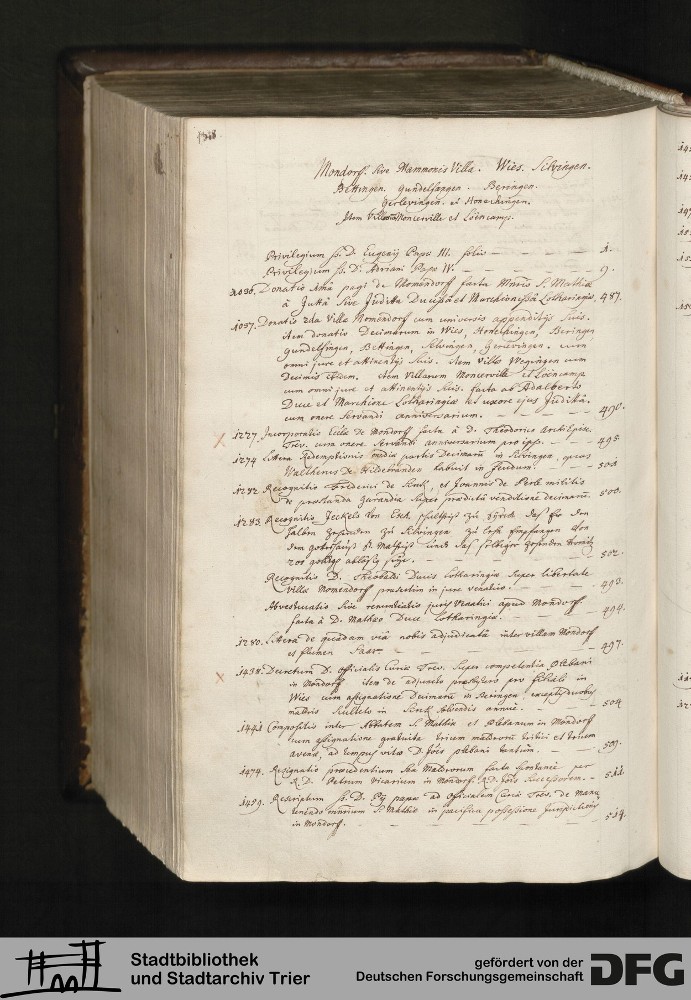 Mondorff. sive Mammonis Villa. Wies. Silvingen.
Bettingen. Gundelfangen. Beringen.
Gerlevingen. et Honechingen.
Item Villa Moncerville et Loencamp.
Privilegium SS. D. Eugenij Papæ III. folio — 1.
Privilegium SS. D. Adriani Papæ IV. — 9.
1036. Donatio pagi de Momendorff facta Mon̄rio S. Mathiæ
à Juttâ sive Judittâ Ducissâ et Marchionissâ Lotharingiæ. 487.
1037. Donatio 2da Villæ Momendorf cum universis appenditijs suis.
item donatio Decimarum in Wies, Honechingen, Beringen
Gundelfingen, Bettingen, Silvingen, Gerlevingen. cum
omni jure et attinentijs suis. item Villæ Wegingen cum
Decimis ibidem. item Villarum Moncerville et Loencamp
cum omni jure et attinentijs suis. facta ab Adalberto
Duce et Marchione Lotharingiæ et uxore ejus Judittâ.
cum onere servandi anniversarium. — 490.
1227. Incorporatio Eccl͞æ de Mondorff facta à D. Theodorico ArchiEp͞o
Trev. cum onere servandi anniversarium pro ipso. — 495.
1274 Littera Redemptionis mediæ partis Decimarū in Silvingen, quas
Waltherus de Hildemanden habuit in feudum. — 501
1282. Recognitio Friderici de Sirck, et Joannis de Perle militis
de præstanda Garandia super prædictâ venditione decimarū. 500.
1283. Recognitio Jeckels von Esch, schultheis zu Sirck das Er den
halben Zehenden zu Silvingen zu lehn Empfangen von
dem gotteshaus St. Mathiis und das selbiger Zehenden
200 ablösig seye. — 502.
Recognitio D. Theobaldi Ducis Lotharingiæ super libertate
Villæ Momendorff præsertim in jure venatio. — 493.
Abvestucatio sive renuntiatio juris Venatici apud Mondorff
facta à D. Matheo Duce Lotharingiæ. — 494.
1280. Littera de quadam viâ nobis adjudicatâ inter villam Mondorf
et flumen Saar. — 497.
1438. Decretum D. Officialis Curiæ Trev. super competentia Plebani
in Mondorff item de adjuncto presbytero pro filiali in
Wies cum assignatione Decimarū in Beringen, exceptis duobus
maldris siliginis in Sirck solvendis annuè. — 504
1441 Compositio inter Abbatem S. Mathiæ et Plebanum in Mondorff
cum assignatione gratuita trium maldrorū tritici et trium
avenæ, ad tempus vitæ D. Jo͞is plebani tantùm. — 509.
1474. Resignatio præcedentium sex Maldrorum facta spontaneè per
R.D. Petrum Vicarium in Mondorf. R.D. Jo͞is successorem. — 511
1459. Rescriptum SS. D. Pij papæ ad Officialem Curiæ Trev. de manu
tenendo monrium S. Mathiæ in pacifica possessione
in Mondorff. — 514.
Stadtbibliothek
und Stadtarchiv Trier
gefördert von der
Deutschen Forschungsgemeinschaft
DFG